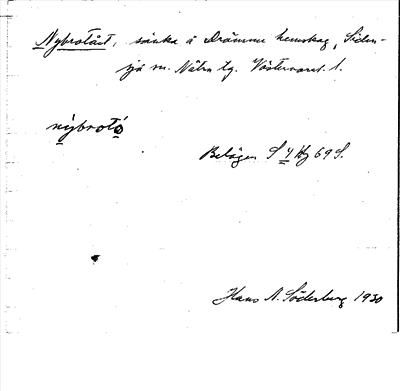 Nybrotåst, sänka å Drömme hemskog, Siden-
sjö sn. Nätra tg. Västernorrl. l.
nybrotó
Belägen S 4 Hg 69 S.
Hans A. Söderberg 1930